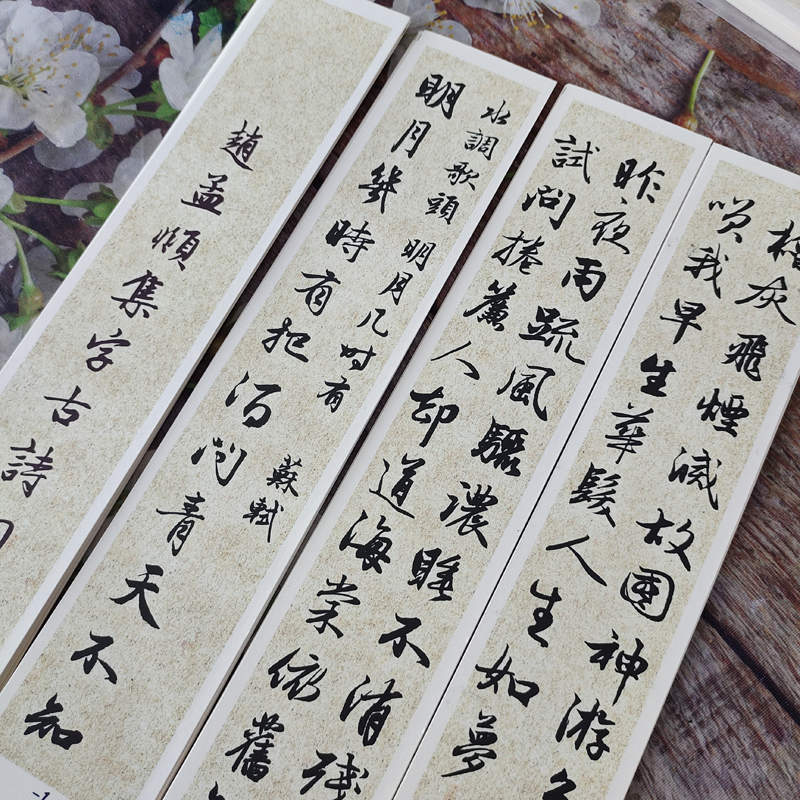 趙孟頫集字古詩
水調歌頭 明月几时有 蘇軾
明月幾時有把酒問青天不知
昨夜雨疏風驟濃睡不消残
試問捲簾人却道海棠依舊
灰飛煙滅故國神游
笑我早生華髮人生如夢